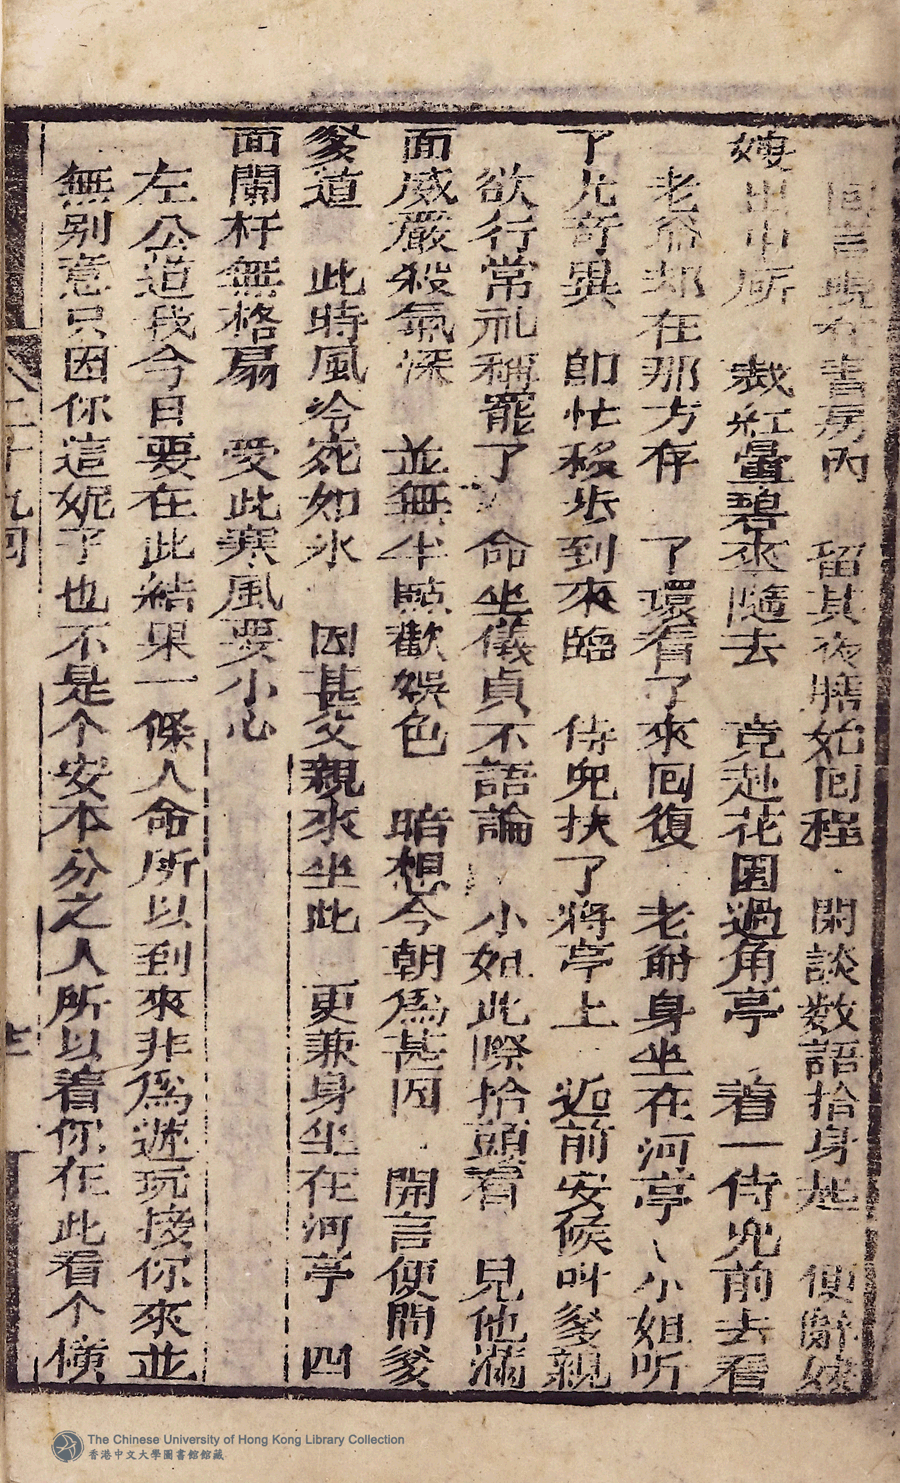 回言現在書房內 留其夜膳始回程 閑談数語抬身起 便辭嫂
娒出中所 裁紅疊碧來隨去 竟赴花园過角亭 着一侍兜前去看
老爺却在那方存 了環看了來囘復 老爺身坐在河亭 小姐听
了尤奇異 即忙移步到來臨 侍兜扶了將亭上 近前安候叫爹親
欲行常礼稱罷了 命坐儀貞不語論 小姐此際抬頭看 見他滿
面威嚴殺氣深 並無半點歡娛色 暗想今朝為甚因 開言便問爹
爹道 此時風冷宛如氷 因甚父親來坐此 更兼身坐在河亭 四
面闌杆無格扇 受此寒風要小心
左公道我今日要在此結果一條人命所以到來非為遊玩接你來並
無别意只因你這妮子也不是个安本分之人所以着你在此看个榜
二十九囘
The Chinese University of Hong Kong Library Collection
香港中文大學圖書館館藏